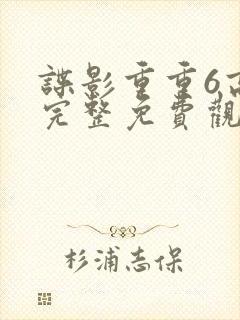 諜影重重6高
完整免費觀
杉浦志保